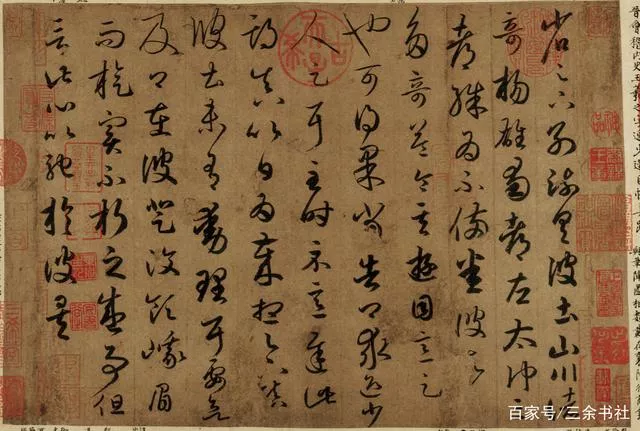 省足下別疏具彼土山川諸
奇揚雄蜀都左太沖三
都殊為不備悉彼故
多奇益令其遊目意足
也可得果當告卿求迎少
人足耳至時示意遲此
期真以日為歲想足下鎮
彼土未有動理耳要欲
及卿在彼登汶領峨眉
而旋實不朽之盛事但
言此心以馳於彼矣
百家号/三余书社